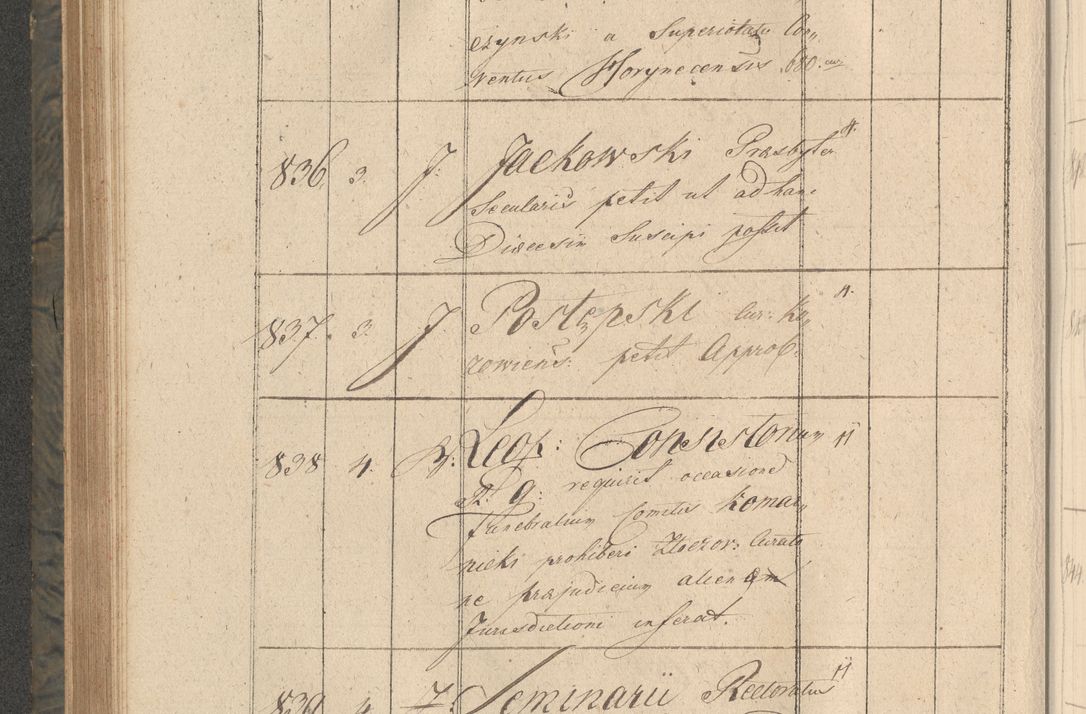 czynski a Superiotatu Con„
ventus Horynecensis 680.
836. 3. J. Jackowski Præsbyter
Sæcularis petit ut ad hanc
Diœcesim Suscipi possit
837. 3. J. Postępski Cur: Ko„
zowiens: petit Approb:
838 4. Leop: Consistorium
R. g: requirit occasione
Funebralium Comitis Komar„
nicki prohiberi Złoczov: Curato
ne præjudicium alienæ
Jurisdictioni inferat.
839 4. Seminarii Rectoratus